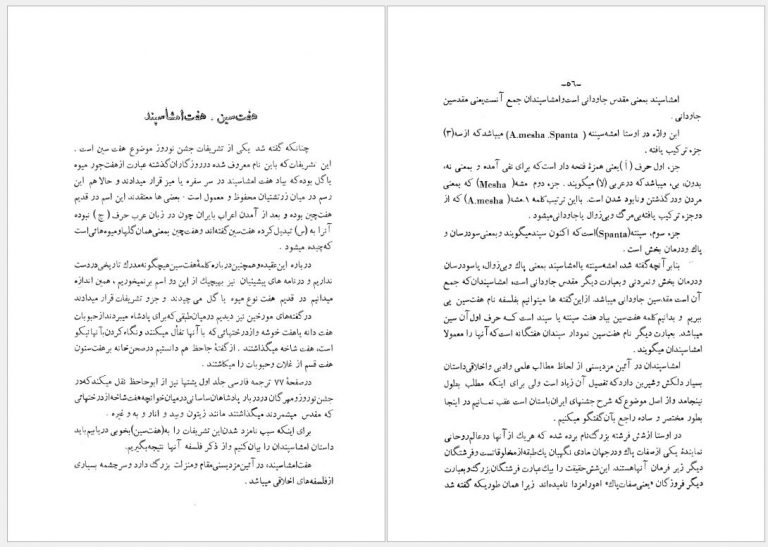 هفت‌سین . هفت‌امشاسپند
چنانکه گفته شد یکی از تشریفات جشن نوروز موضوع هفت سین است .
این تشریفات که باین نام معروف شده درروزگاران گذشته عبارت ازهفت‌جور میوه
یاگل بوده‌که بیاد هفت امشاسپند در سر سفره یا میز قرار میدادند و حالا هم این
رسم در میان زرتشتیان محفوظ و معمول است . بعضی ها معتقدند این اسم در قدیم
هفت‌چین بوده و بعد از آمدن اعراب بایران چون در زبان عرب حرف ( چ ) نبوده
آنرا به (س) تبدیل‌کرده هفت‌سین‌گفته‌اند وهفت‌چین بمعنی‌همان‌گلهاومیوه‌هائی‌است
که‌چیده میشود .
درباره این‌عقیده‌وهمچنین درباره کلمهٔ هفت‌سین هیچگونه‌مدرك تاریخی‌دردست
نداریم و درنامه های پیشینیان نیز بهیچیك از این دو اسم برنمیخوریم ، همین اندازه
میدانیم در قدیم هفت نوع میوه یا گل می چیدند و جزو تشریفات قرار میدادند
درگفته‌های مورخین نیز دیدیم درمیان‌طبقی‌که برای پادشاه میبردند ازحبوبات
هفت دانه یاهفت خوشه وازدرختهائی که با آنها تفأل میکنند ونگاه کردن‌بآنهانیکو
است، هفت شاخه میگذاشتند . ازگفتهٔ جاحظ هم دانستیم درصحن‌خانه برهفت‌ستون
هفت قسم از غلات وحبوبات را میکاشتند .
درصفحهٔ ۷۷ ترجمه فارسی جلد اول یشتها نیز از ابوحاحظ نقل میکندکه‌در
جشن‌نوروزومهرگان دردربار پادشاهان‌ساسانی‌درمیان‌خوانچه‌هفت‌شاخه‌ازدرختهائی
که مقدس میشمردند میگذاشتند مانند زیتون وبید و انار و به و غیره .
برای اینکه سبب نامزد شدن‌این تشریفات را به(هفت‌سین)بخوبی دریابیم باید
داستان امشاسپندان را بیان‌کنیم و از ذکر فلسفه آنها نتیجه‌بگیریم.
هفت‌امشاسپند، در آئین‌مزدیسنی‌مقام ومنزلت بزرگ دارد وسرچشمه بسیاری
ازفلسفه‌های اخلاقی میباشد .
-۵۶-
امشاسپند بمعنی مقدس جاودانی است‌وامشاسپندان جمع آنست‌یعنی مقدسین
جاودانی .
این واژه در اوستا امشه‌سپنته ( A.mesha .Spanta ) میباشدکه ازسه(۳)
جزء ترکیب یافته .
جزء اول حرف ( اَ )یعنی همزهٔ فتحه داراست‌که برای نفی آمده و بمعنی نه،
بدون، بی، میباشدکه درعربی (لا) میگویند . جزء دوم مشه( Mesha) که بمعنی
مردن ودرگذشتن ونابود شدن است. بااین ترتیب‌کلمه ا.مشه( A.mesha ) که از
دوجزء ترکیب یافته‌بی‌مرگ وبی‌زوال یاجاودانی‌میشود .
جزء سوم، سپنته (Spanta)است‌که اکنون سپندمیگویند وبمعنی‌سودرسان و
پاك ودرمان بخش است .
بنابر آنچه‌گفته شد، امشه‌سپنته یاامشاسپند بمعنی پاك وبی‌زوال، یاسودرسان
ودرمان بخش و نمردنی و بعبارت دیگر مقدسین جاودانی‌است، امشاسپندان‌که جمع
آن است مقدسین جاودانی میباشد. ازاین‌گفته ها میتوانیم بفلسفه نام هفت‌سین پی
ببریم و بدانیم‌کلمه هفت‌سین بیاد هفت سپنته یا سپند است کــه حرف اول‌آن سین
میباشد. بعبارت دیگر نام هفت‌سین نمودار سپندان هفتگانه است‌که‌آنها را معمولا
امشاسپندان میگویند .
امشاسپندان در آئین مزدیسنی از لحاظ مطالب علمی وادبی واخلاقی‌داستان
بسیار دلکش وشیرین داردکه‌تفصیل آن زیاد است ولی برای اینکه مطلب بطول
نینجامد واز اصل موضوع‌که شرح جشنهای ایران‌باستان است عقب نمــانیم در اینجا
بطور مختصر و ساده راجع بآن‌گفتگو میکنیم .
در اوستا ازشش فرشته بزرگ‌نام برده شده که هریك از آنها درعالم‌روحانی
نمایندهٔ یکی ازصفات پاك ودرجهان مادی نگهبان یك‌طبقه‌ازمخلوقاتست‌وفرشتگان
دیگر زیر فرمان آنهاهستند. این‌شش‌حقیقت را بیك‌عبارت فرشتگان بزرگ‌وبعبارت
دیگر فروزگان «یعنی‌صفات‌پاك» اهورامزدا نامیده‌اند زیرا همان طوریکه گفته شد